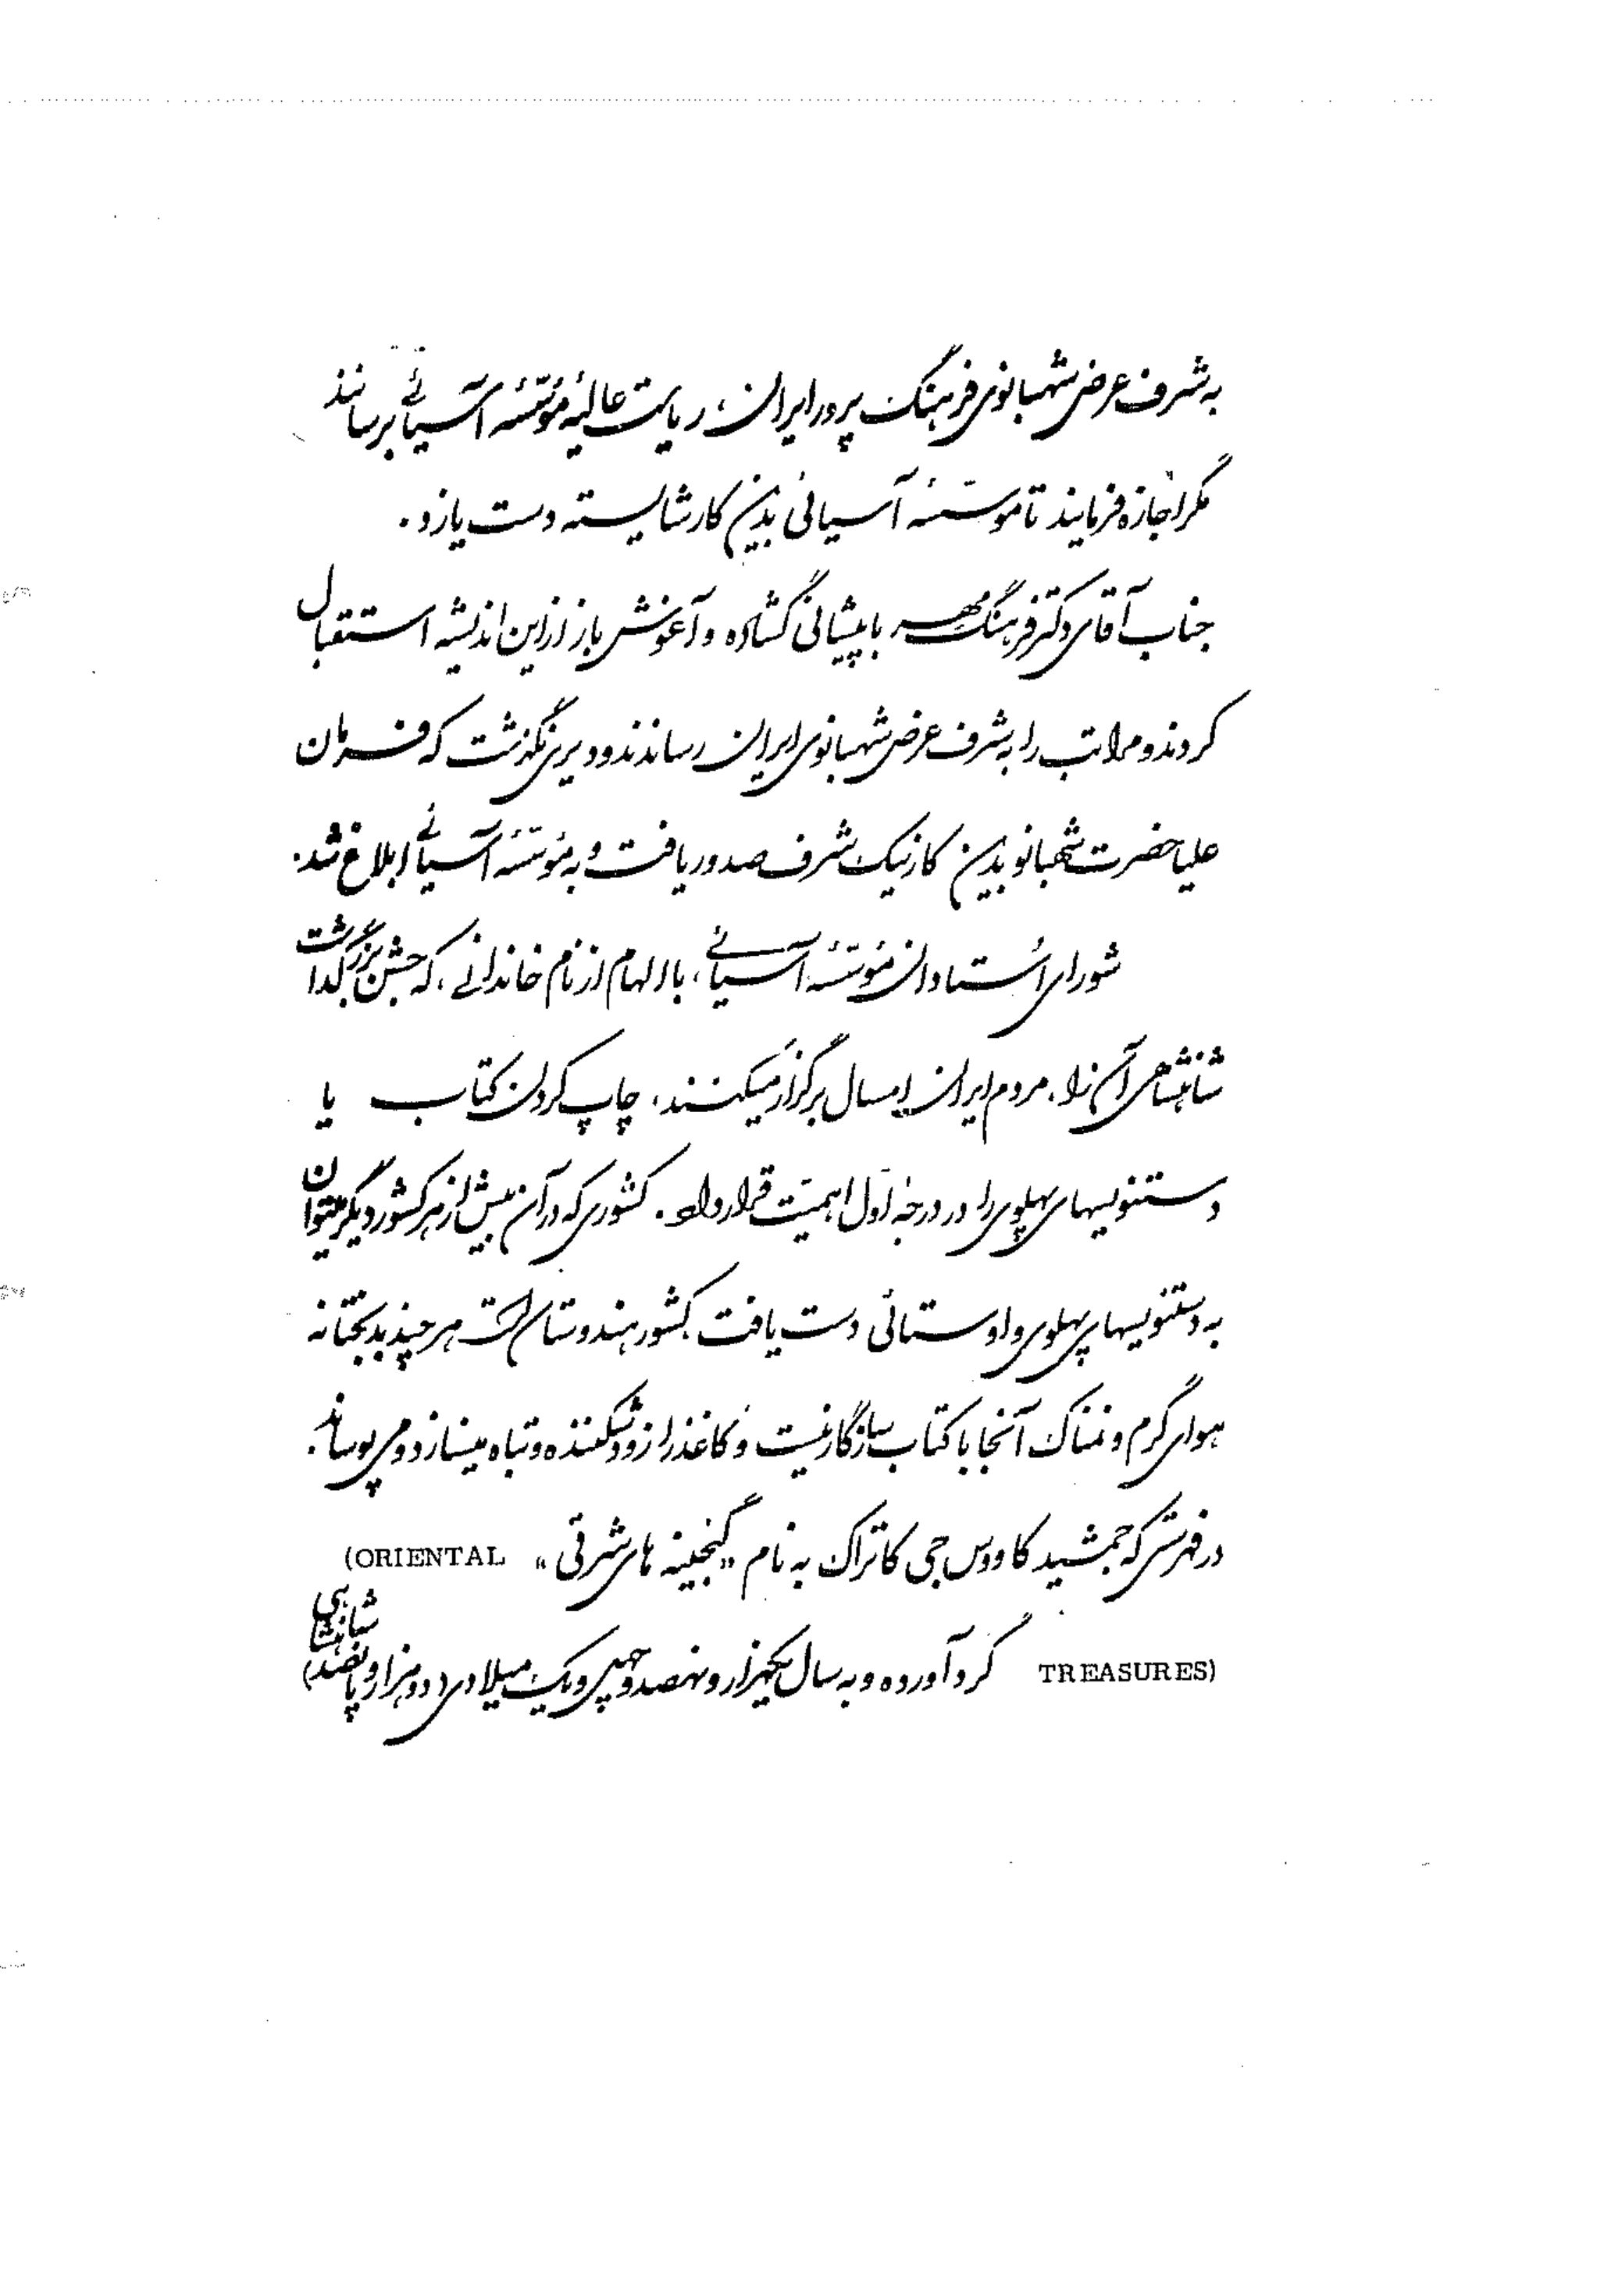 به شرف عرض شهبانوی فرهنگ پرور ایران، ریاست عالیهٔ مؤسّسهٔ آسیائی برسانند
مگر اجازه فرمایند تا موسّسهٔ آسیائی بدین کار شایسته دست یازد.
جناب آقای دکتر فرهنگ مهر با پیشانی گشاده و آغوش باز از این اندیشه استقبال
کردند و مراتب را به شرف عرض شهبانوی ایران رساندند و دیری نگذشت که فرمان
علیاحضرت شهبانو بدین کار نیک شرف صدور یافت و به مؤسّسهٔ آسیائی ابلاغ شد.
شورای اُستادان مؤسّسهٔ آسیائی، با الهام از نام خاندانی، که جشن بزرگداشت
شاهنشاهی آن را، مردم ایران امسال برگزار میکنند، چاپ کردن کتاب یا
دستنویسهای پهلوی را در درجهٔ اول اهمیّت قرار داد. کشوری که در آن بیش از هر کشور دیگر میتوان
به دستنویسهای پهلوی و اوستائی دست یافت کشور هندوستان است هر چند بدبختانه
هوای گرم و نمناک آنجا با کتاب سازگار نیست و کاغذ را زود شکننده و تباه میسازد و می پوساند.
در فهرستی که جمشید کاووس جی کاتراک به نام «گنجینه های شرقی» (ORIENTAL
TREASURES) گرد آورده و به سال یکهزار و نهصد و چهل و یک میلادی (دو هزار و پانصد شاهنشاهی)